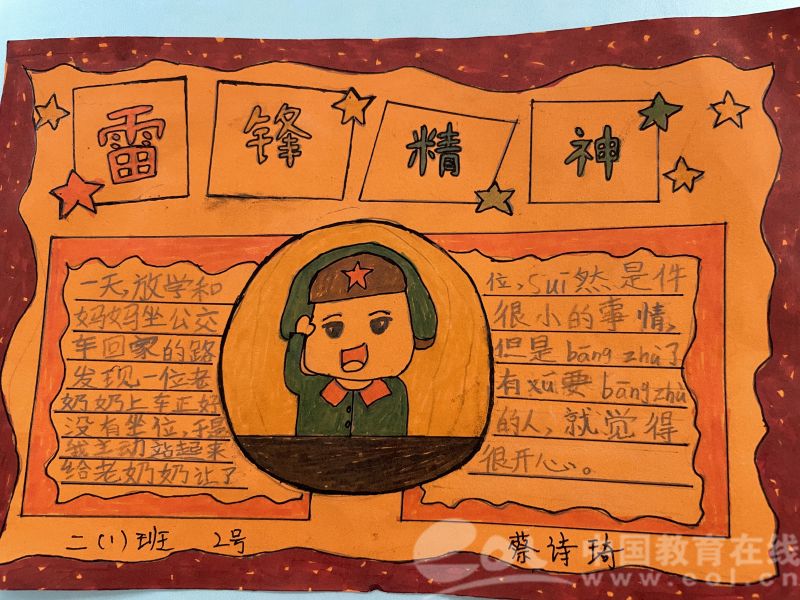 雷锋精神
一天,放学和
妈妈坐公交
车回家的路
发现一位老
奶奶上车正好
没有坐位,于是
我主动站起来
给老奶奶让了
位,Suī然是件
很小的事情,
但是bāng zhù了
有xū要bāng zhù
的人,就觉得
很开心。
二(1)班 2号
蔡诗琦
中国教育在线
www.eol.cn